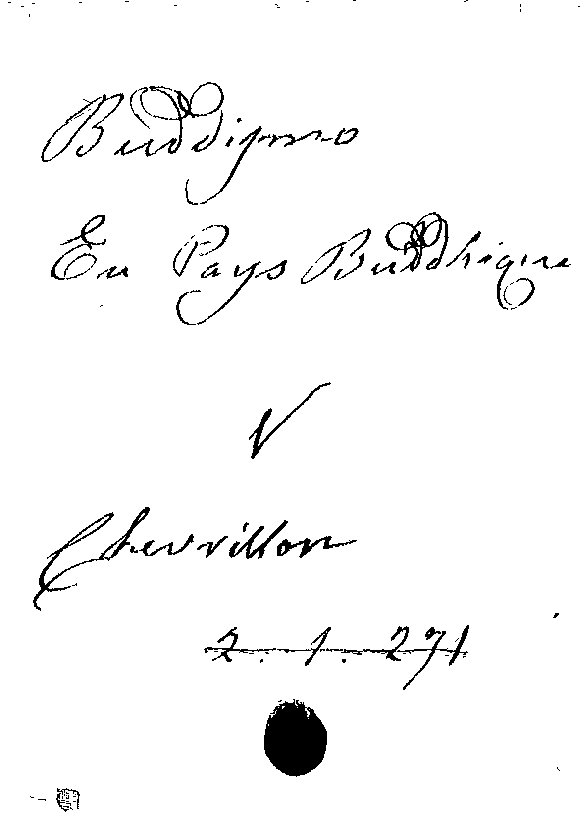 Buddismo
En Pays Buddhique
V
Chevrillon
2. 1. 271